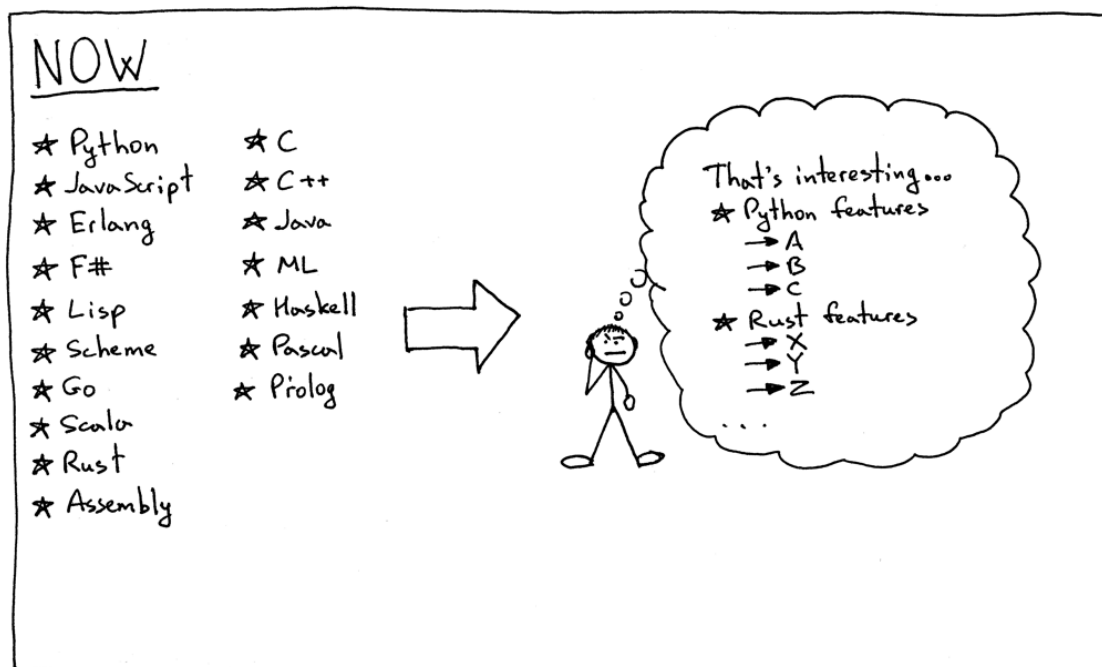 NOW
★ Python
★ JavaScript
★ Erlang
★ F#
★ Lisp
★ Scheme
★ Go
★ Scala
★ Rust
★ Assembly
★ C
★ C++
★ Java
★ ML
★ Haskell
★ Pascal
★ Prolog
That's interesting...
★ Python features
→ A
→ B
→ C
★ Rust features
→ X
→ Y
→ Z
....